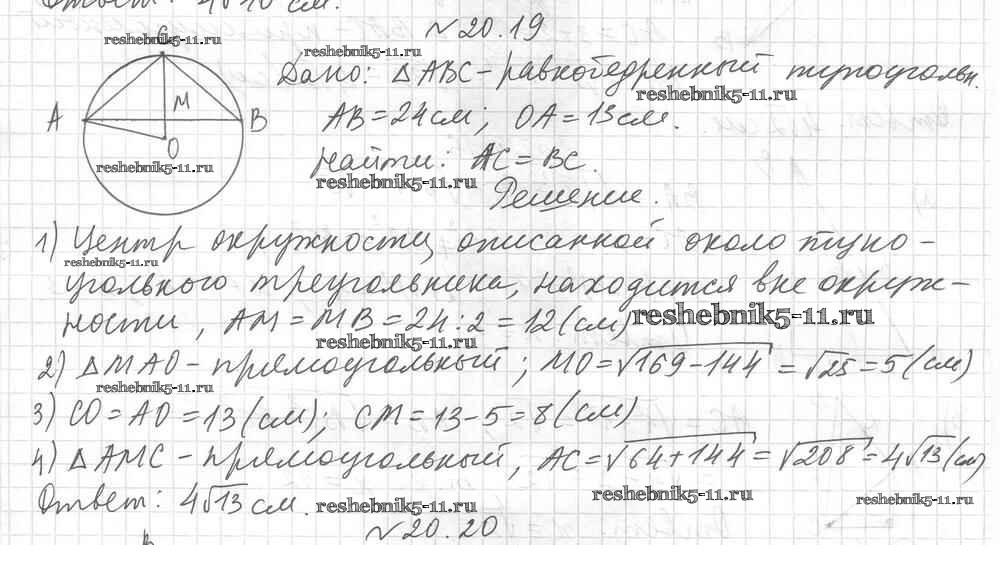 Ответ: 4√10 см.
№20.19
C
reshebnik5-11.ru
reshebnik5-11.ru
Дано: △ABC - равнобедренный тупоугольн.
reshebnik5-11.ru
A
M
B
O
AB = 24 см; OA = 13 см.
reshebnik5-11.ru
Найти: AC = BC.
reshebnik5-11.ru
Решение.
1) Центр окружности, описанной около тупо-
reshebnik5-11.ru
угольного треугольника, находится вне окруж-
ности, AM = MB = 24 : 2 = 12 (см)
reshebnik5-11.ru
reshebnik5-11.ru
2) △MAO - прямоугольный; MO = √169 - 144 = √25 = 5 (см)
reshebnik5-11.ru
3) CO = AO = 13 (см); CM = 13 - 5 = 8 (см)
4) △AMC - прямоугольный, AC = √64 + 144 = √208 = 4√13 (см)
Ответ: 4√13 см.
reshebnik5-11.ru
reshebnik5-11.ru
reshebnik5-11.ru
№20.20